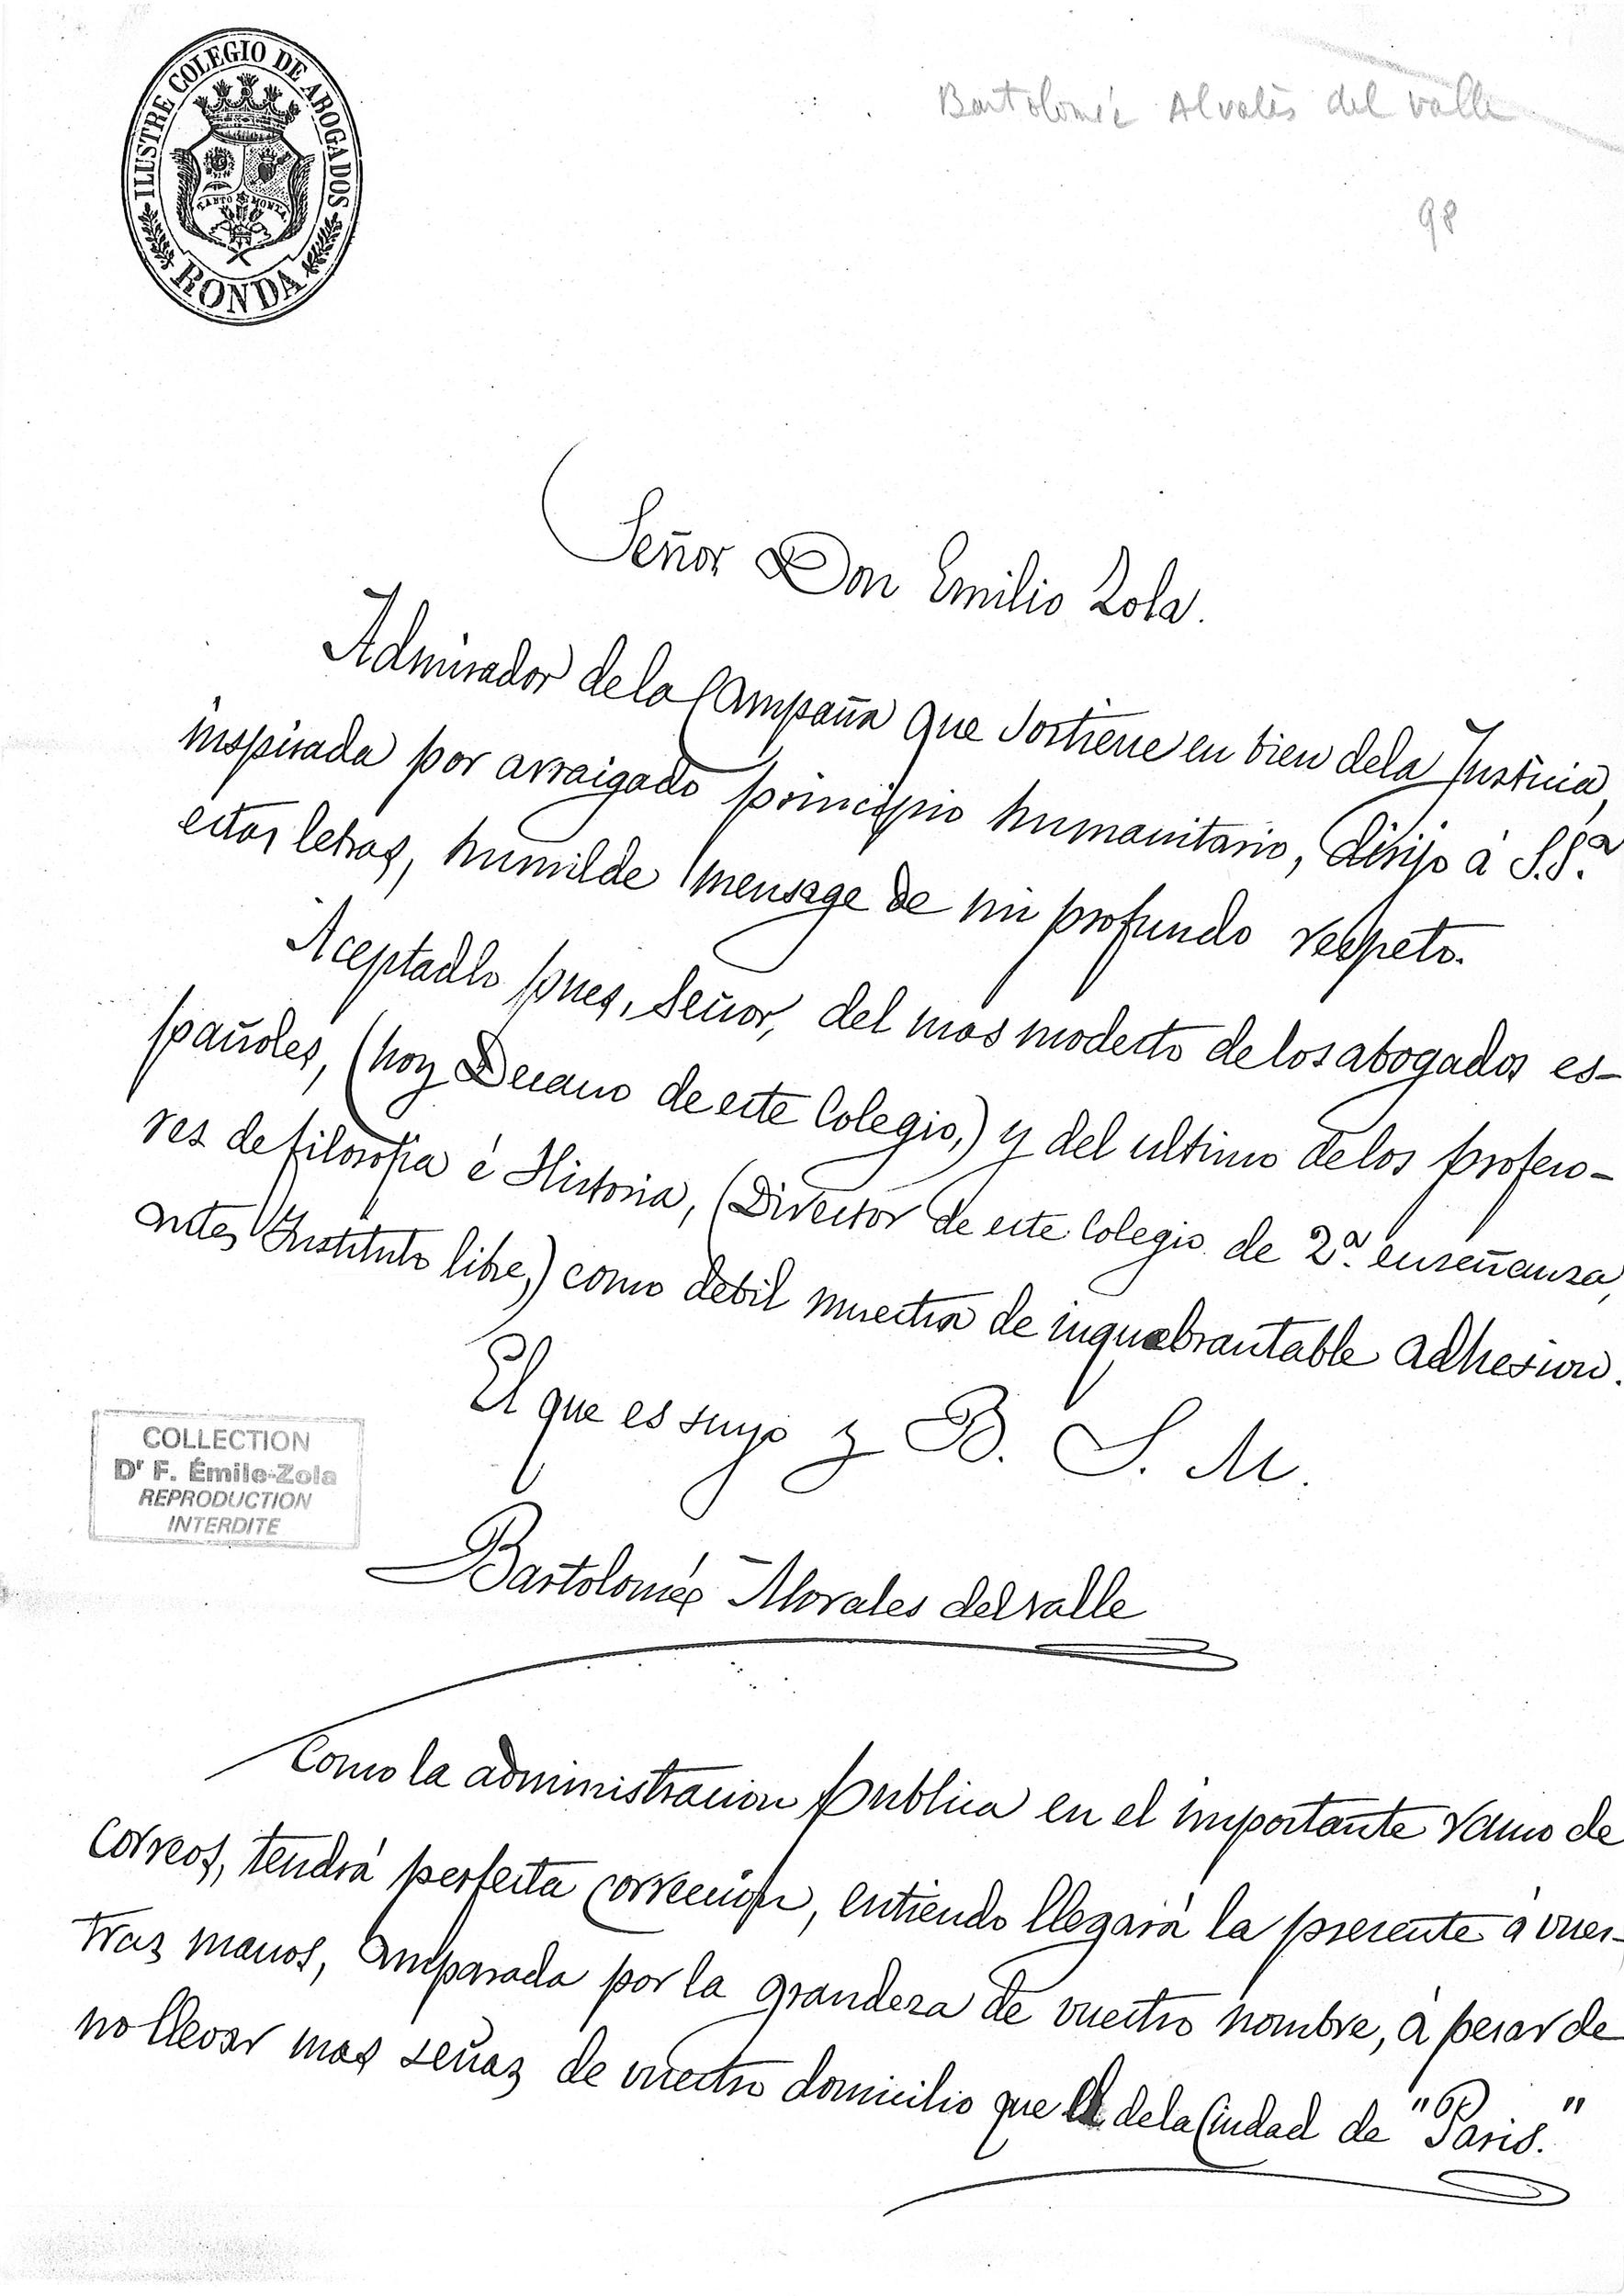 ILUSTRE COLEGIO DE ABOGADOS
TANTO MONTA
RONDA
Bartolomé Alvalès del valle
98
Señor Don Emilio Zola.
Admirador de la Campaña que sostiene en bien de la Justicia,
inspirada por arraigado principio humanitario, dirijo á S.Sª.
estas letras, humilde mensage de mi profundo respeto.
Aceptadlo pues, Señor, del mas modesto de los abogados es-
pañoles, (hoy Decano de este Colegio,) y del ultimo de los profeso-
res de filosofia é Historia, (Director de este Colegio de 2ª. enseñansa,
antes Instituto libre,) como debil muestra de inquebrantable adhesion.
El que es suyo y B. S. M.
COLLECTION
Dr F. Émile-Zola
REPRODUCTION
INTERDITE
Bartolomé Morales del valle
Como la administracion publica en el importante ramo de
correos, tendrá perfecta correccion, entiendo llegará la presente á vues-
tras manos, amparada por la grandeza de vuestro nombre, á pesar de
no llevar mas señas de vuestro domicilio que el de la Ciudad de "Paris."